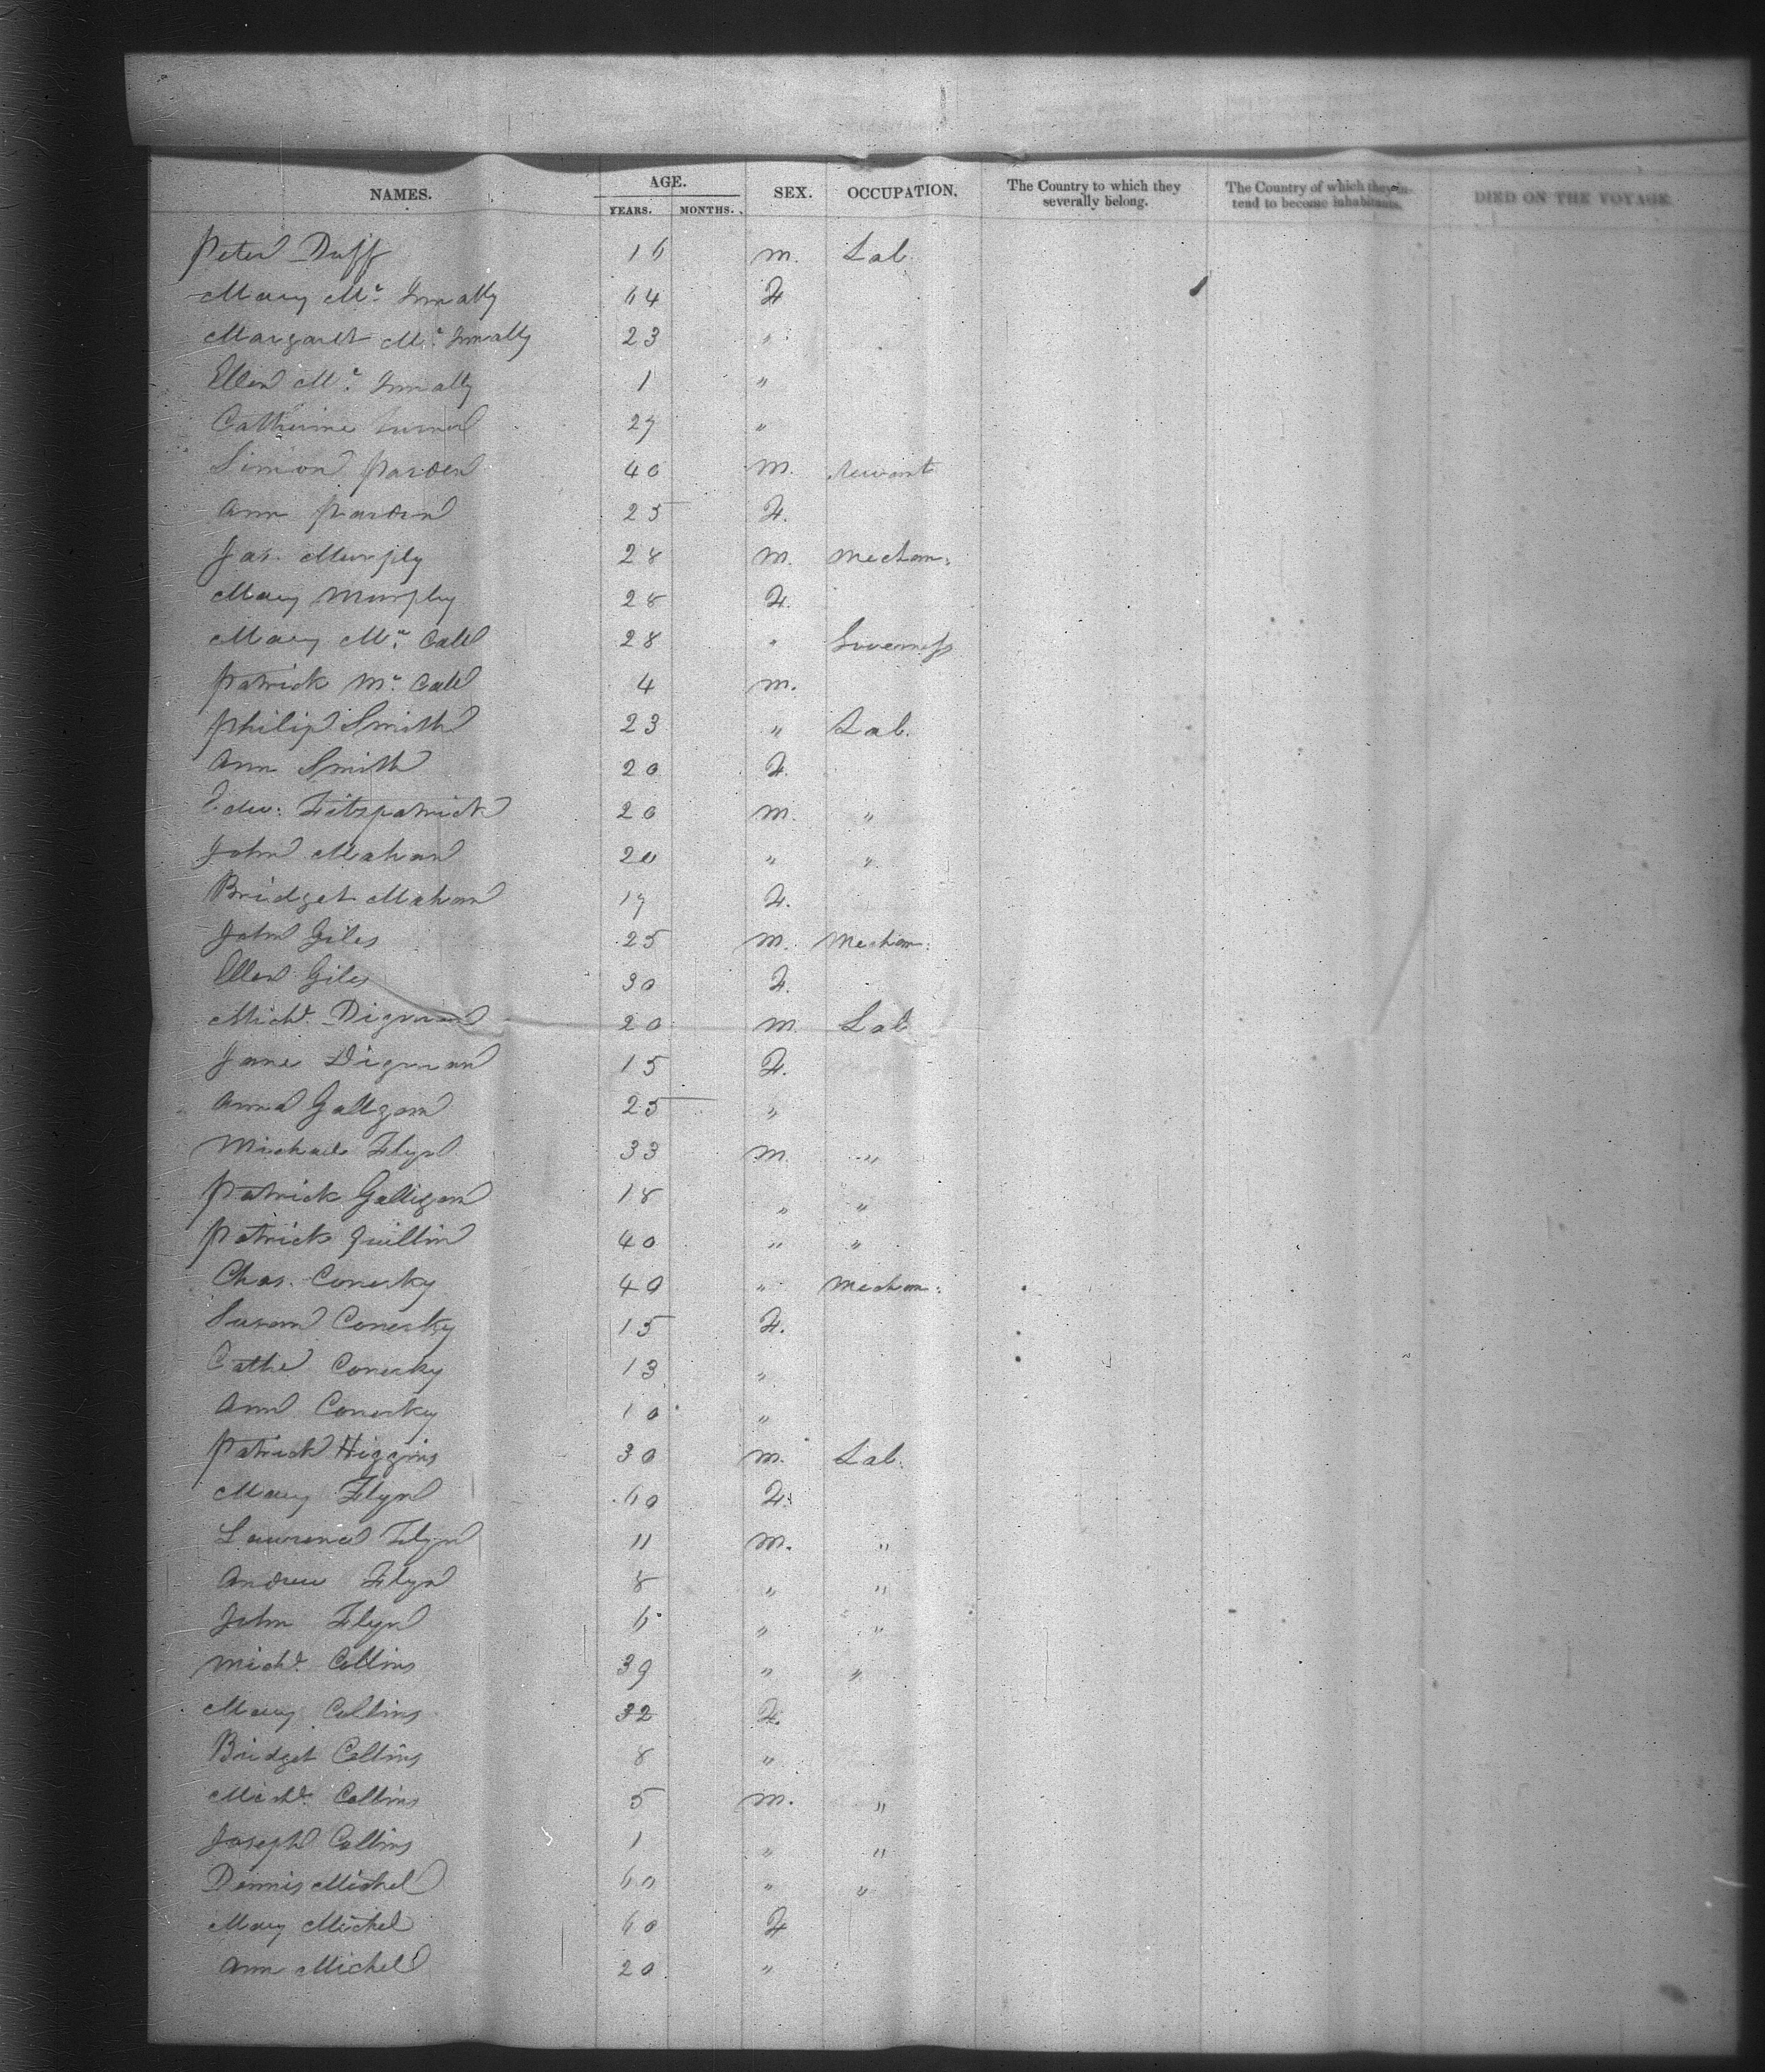 NAMES. AGE. SEX. OCCUPATION. The Country to which they severally belong. The Country of which they intend to become inhabitants. DIED ON THE VOYAGE.
YEARS. MONTHS.
Peter Duff 16 M. Lab.
Mary Mc 64 F
Margaret Mc 23 "
Ellen Mc 1 "
Catherine Turner 27 "
Simon Parden 40 M. Servant
Ann Parden 25 F.
Jas. Murphy 28 M. Mechan:
Mary Murphy 28 F.
Mary Mc Call 28 " Governess
Patrick Mc Call 4 M.
Philip Smith 23 " Lab.
Ann Smith 20 F.
Edw: Fitzpatrick 20 M. "
John Mahan 20 " "
Bridget Mahan 17 F.
John Giles 25 M. Mechan:
Ellen Giles 30 F.
Michl. Dignan 20 M. Lab
Jane Dignan 15 F.
Anna Galligan 25 "
Michael Flyn 33 M. "
Patrick Galligan 18 " "
Patrick Quillin 40 " "
Chas. Conerky 40 " Mechan:
Susan Conerky 15 F.
Cathe Conerky 13 "
Ann Conerky 10 "
Patrick Higgins 30 M. Lab.
Mary Flyn 60 F.
Lawrence Flyn 11 M. "
Andrew Flyn 8 " "
John Flyn 6 " "
Michl. Collins 39 " "
Mary Collins 32 F.
Bridget Collins 8 "
Michl. Collins 5 M. "
Joseph Collins 1 " "
Dennis Michel 60 " "
Mary Michel 60 F
Ann Michel 20 "